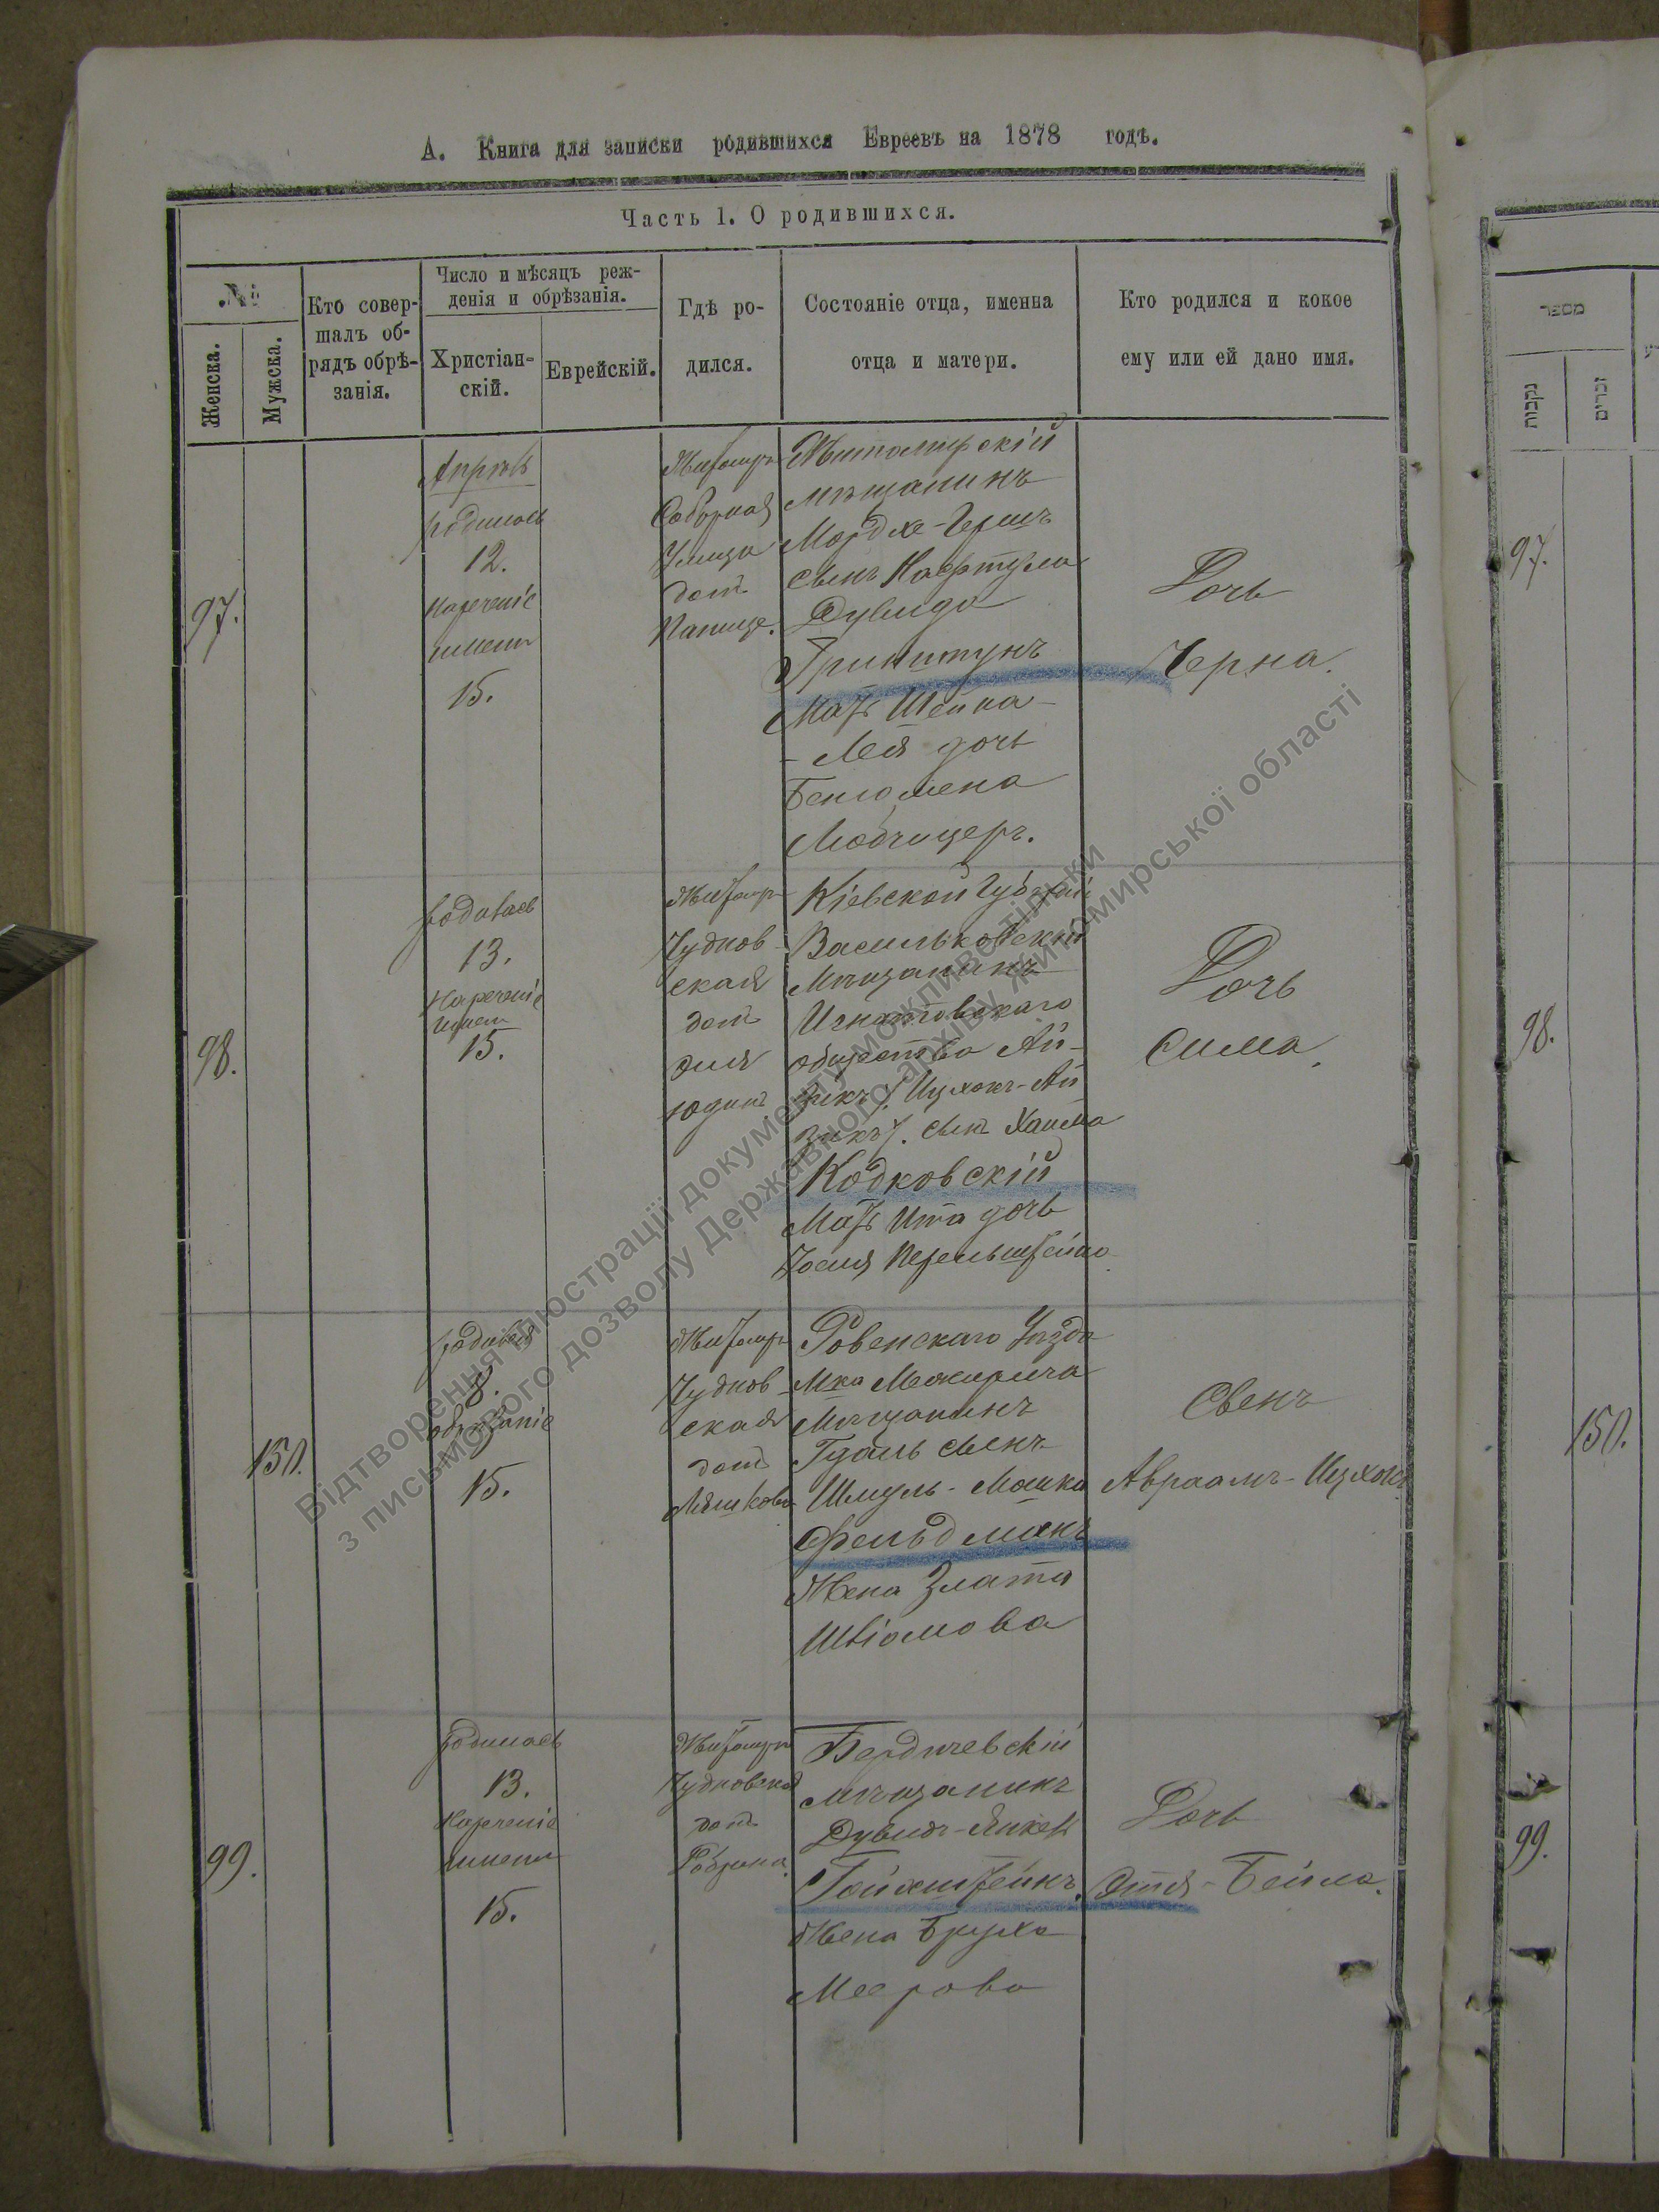 А. Книга для записки родившихся Евреевъ на 1878 годъ.
Часть 1. О родившихся.
№
Женска.
Мужска.
Кто совер-
шалъ об-
рядъ обрѣ-
занія.
Число и мѣсяцъ реж-
денія и обрѣзанія.
Христіан-
скій.
Еврейскій.
Гдѣ ро-
дился.
Состояніе отца, именна
отца и матери.
Кто родился и кокое
ему или ей дано имя.
97.
Апрѣль
родилась
12.
Нареченіе
имени
15.
Житомиръ
Соборная
Улица
домъ
Житомирскій
мѣщанинъ
Мордхе-Гершъ
сынъ Нафтула
Дувида
Мать Шейна-
-Лея дочь
Бенюмена
Дочь
Черна.
98.
родилась
13.
Нареченіе
имени
15.
Житомиръ
Чуднов-
ская
домъ
Кіевской Губерніи
Васильковскій
Мѣщанинъ
Игнатовскаго
общества Ай-
зикъ /: Ицхокъ-Ай
зикъ /. сынъ Хаима
Кодковскій
Мать Ита дочь
Іося Перельштейна
Дочь
Сима.
150.
родился
8.
обрѣзаніе
15.
Житомиръ
Чуднов-
ская
домъ
Ровенскаго Уѣзда
Мка Межирича
Мѣщанинъ
Гдаль сынъ
Шмуль-Мошка
Фельдманъ
Жена Злата
Шліомова
Сынъ
Авраамъ-Ицхокъ
99.
родилась
13.
Нареченіе
имени
15.
Житомиръ
Чудновская
домъ
Бердичевскій
мѣщанинъ
Дувидъ-Янкель
Гойхштейнъ.
Жена Бруха
Меерова
Дочь
Этя-Бейла.
מספר
נקבות
זכרים
97.
98.
150.
99.
Відтворення ілюстрації документу можливе тільки
з письмового дозволу Державного архіву Житомирської області